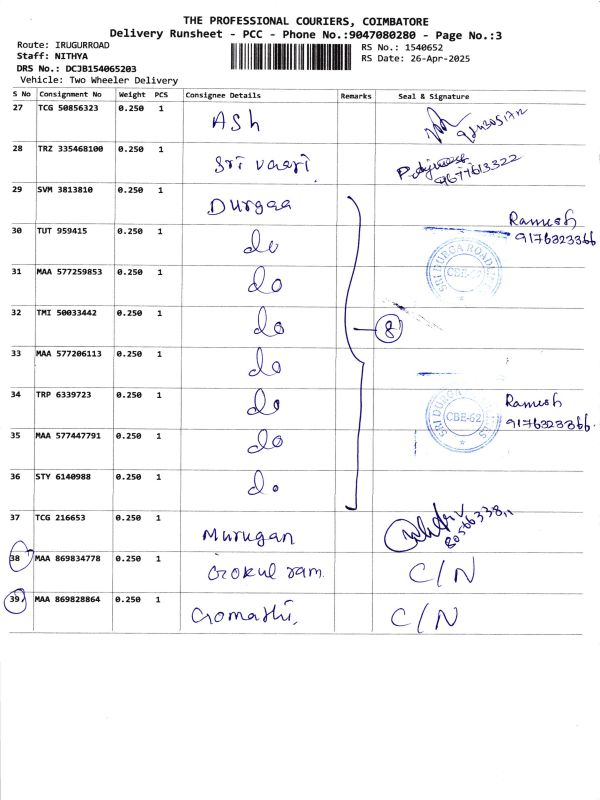 THE PROFESSIONAL COURIERS, COIMBATORE
Delivery Runsheet - PCC - Phone No.:9047080280 - Page No.:3
Route: IRUGURROAD
Staff: NITHYA
DRS No.: DCJB154065203
Vehicle: Two Wheeler Delivery
RS No.: 1540652
RS Date: 26-Apr-2025
S No Consignment No Weight PCS Consignee Details Remarks Seal & Signature
27 TCG 50856323 0.250 1 Ash
28 TRZ 335468100 0.250 1 Sri vaari 9677613322
29 SVM 3813810 0.250 1 Durgaa
Ramesh
9176323366
30 TUT 959415 0.250 1 do
31 MAA 577259853 0.250 1 do
SRI DURGA ROAD
CBE-62
32 TMI 50033442 0.250 1 do 8
33 MAA 577206113 0.250 1 do
34 TRP 6339723 0.250 1 do
Ramesh
9176323366
SRI DURGA
CBE-62
35 MAA 577447791 0.250 1 do
36 STY 6140988 0.250 1 do
37 TCG 216653 0.250 1 Murugan
38 MAA 869834778 0.250 1 Gokul ram. C/N
39 MAA 869828864 0.250 1 Gomathi. C/N